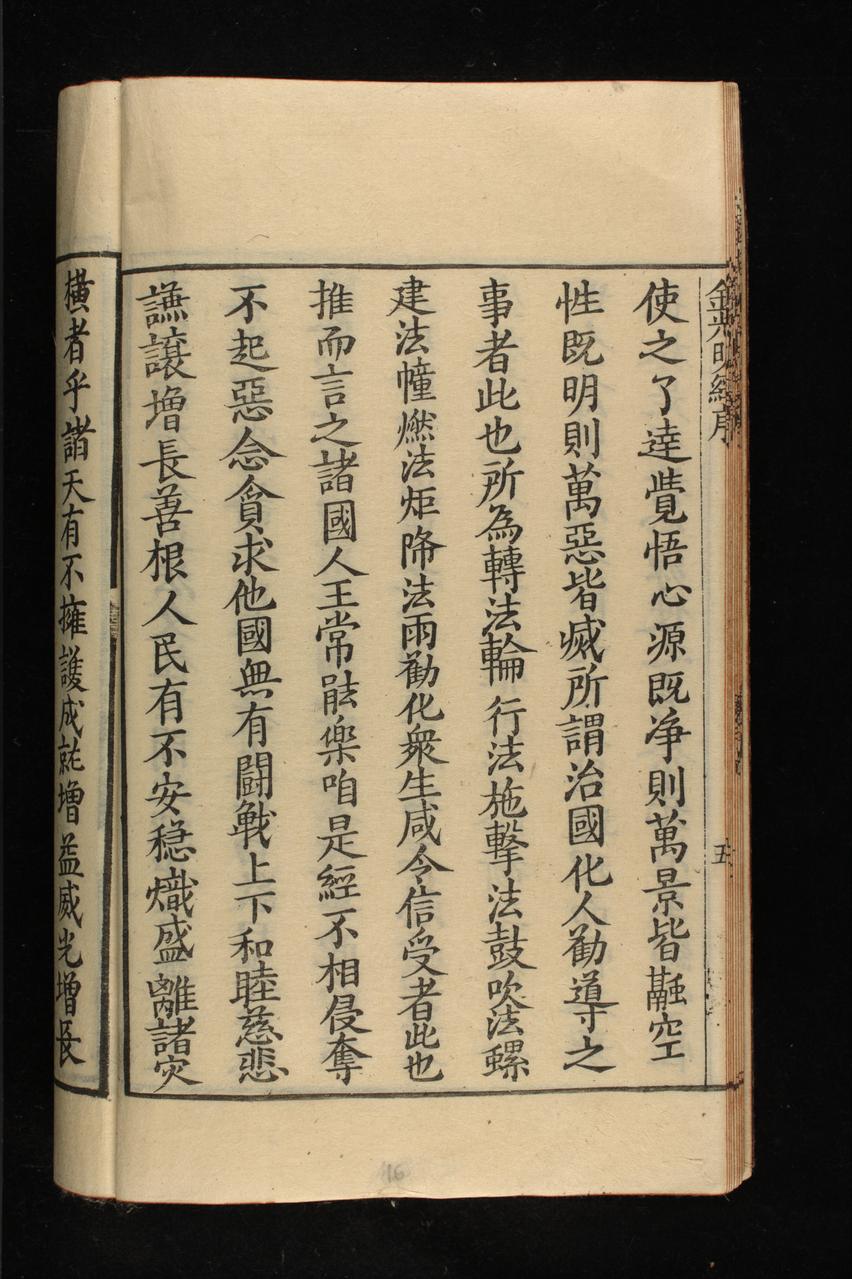 金光明經序
五
使之了達覺悟心源既净則萬景皆融空
性既明則萬惡皆滅所謂治國化人勸導之
事者此也所為轉法輪行法施擊法鼓吹法螺
建法幢燃法炬降法雨勸化衆生咸令信受者此也
推而言之諸國人王常能樂咱是經不相侵奪
不起惡念貪求他國無有闘戰上下和睦慈悲
謙譲增長善根人民有不安穏熾盛離諸灾
横者乎諸天有不擁護成就增益威光增長